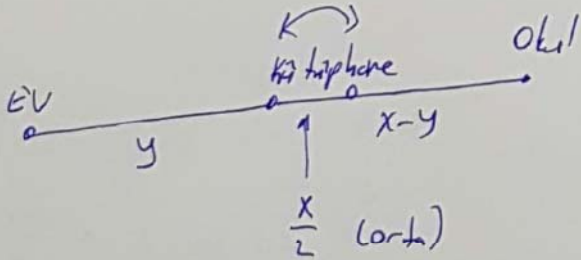 Okul
Kütüphane
EV
y
x-y
x/2 (orta)